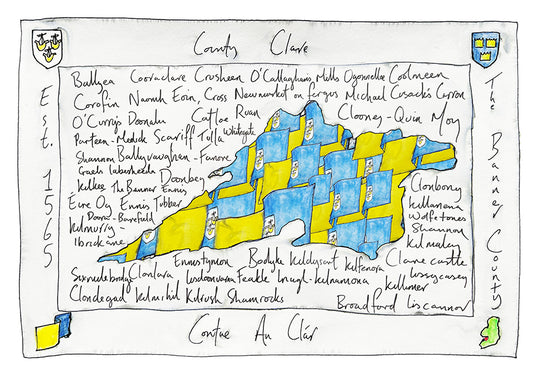 County Clare
Est. 1565
Ballyea Cooraclare Crusheen O'Callaghans Mills Ogonnelloe Coolmeen
Corofin Naomh Eoin, Cross Newmarket on fergus Michael Cusack's Carron
O'Currys Doonaha Catloe Ruan Clooney-Quin Moy
Parteen-Meelick Scariff Tulla Whitegate
Shannon Ballyvaughan-Fanore
Gaels Labasheeda Doonbeg
Kilkee The Banner Ennis
Éire Óg Ennis Tubber
Doora-Barefield
Kilmurry-
Ibrickane
Clonbony
Kilkenana
Wolfetones
Shannon
Kilmaley
Ennistymon Bodyke Kildysart Kilfenora Clarecastle
Sixmilebridge Clonlara Lisdoonvarna Feakle Inagh-Kilnamona Killimer Lissycasey
Clondegad Kilmihil Kilrush Shamrocks
Broadford Liscannor
The Banner County
Contae An Chláir